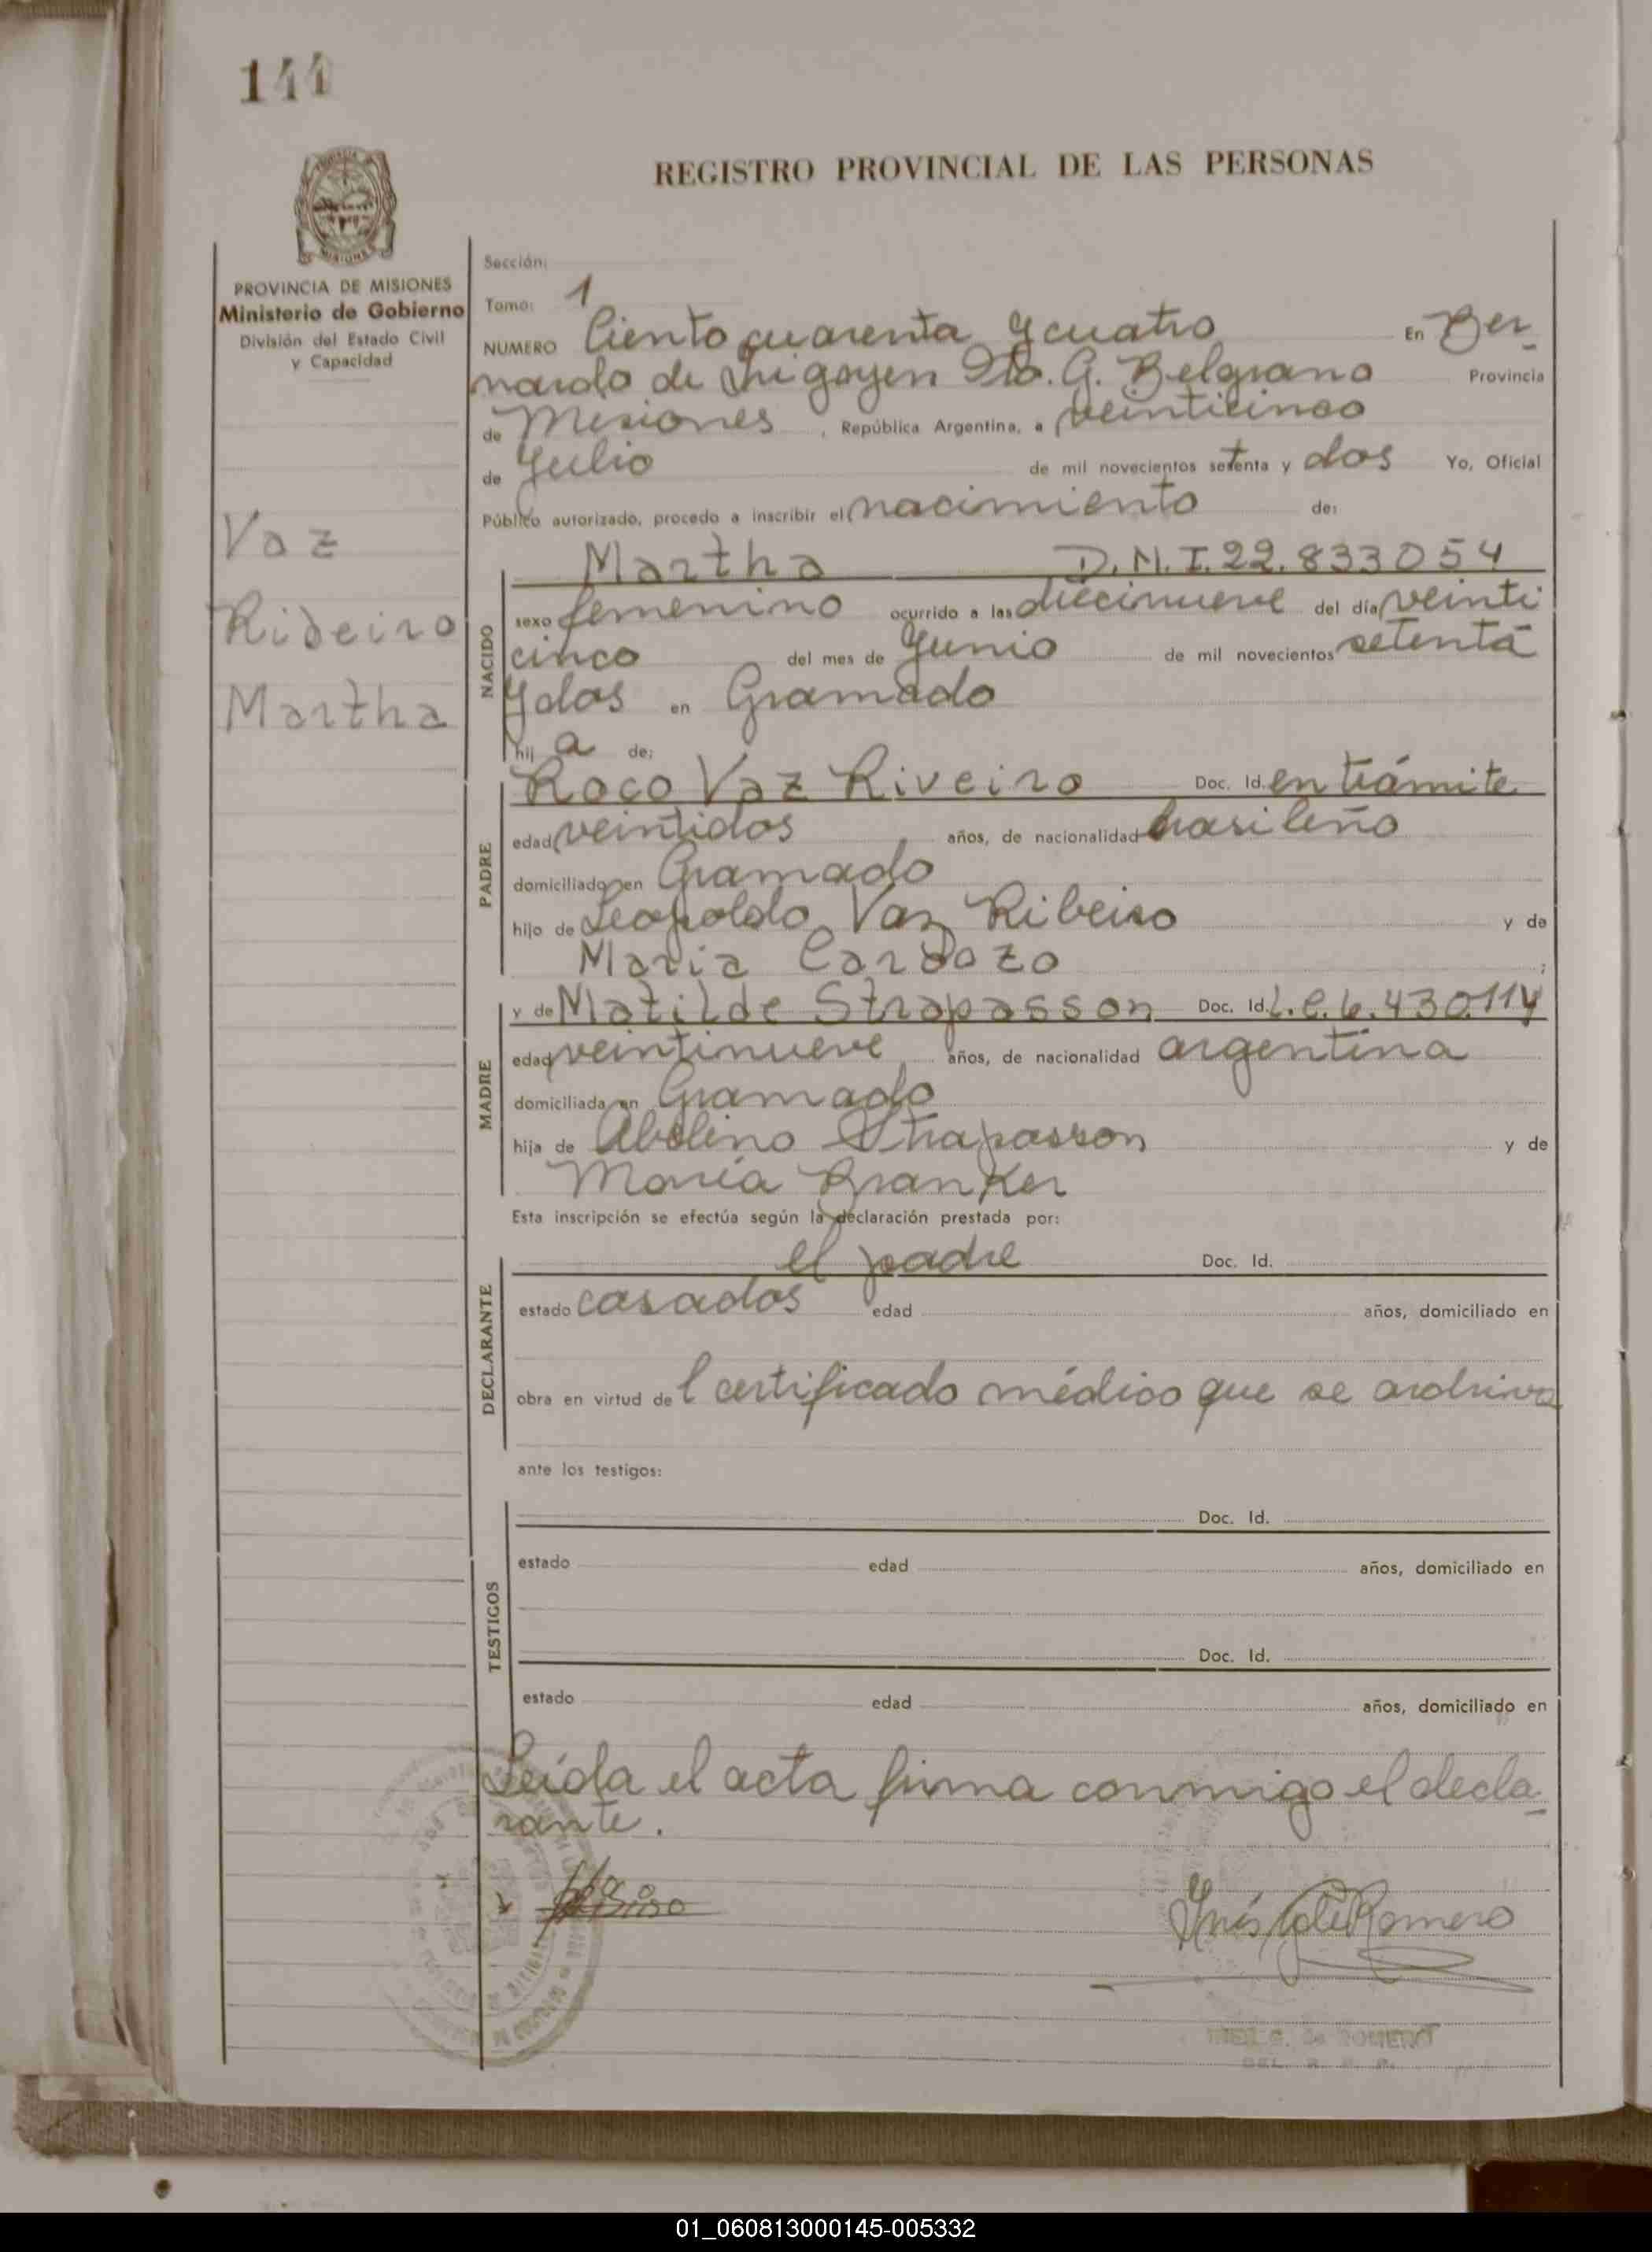 144
REGISTRO PROVINCIAL DE LAS PERSONAS
PROVINCIA DE MISIONES
Ministerio de Gobierno
División del Estado Civil
y Capacidad
Vaz
Ribeiro
Martha
Sección:
Tomo: 1
NUMERO Ciento cuarenta y cuatro En Ber-
nardo de Irigoyen Dto. G. Belgrano Provincia
de Misiones, República Argentina, a veinticinco
de Julio de mil novecientos setenta y dos Yo, Oficial
Público autorizado, procedo a inscribir el nacimiento de:
Martha D.N.I. 22.833054
NACIDO
sexo femenino ocurrido a las diecinueve del día veinti
cinco del mes de Junio de mil novecientos setenta
y dos en Gramado
hij a de:
PADRE
Roco Vaz Riveiro Doc. Id. en trámite
edad veintidos años, de nacionalidad brasileño
domiciliado en Gramado
hijo de Leopoldo Vaz Ribeiro y de
Maria Cardozo ;
MADRE
y de Matilde Strapasson Doc. Id. L.C. 6.430.114
edad veintinueve años, de nacionalidad argentina
domiciliada en Gramado
hija de Abelino Strapasson y de
María Branker
Esta inscripción se efectúa según la declaración prestada por:
DECLARANTE
el padre Doc. Id.
estado casados edad años, domiciliado en
obra en virtud del certificado médico que se archiva
ante los testigos:
TESTIGOS
Doc. Id.
estado edad años, domiciliado en
Doc. Id.
estado edad años, domiciliado en
Leída el acta firma conmigo el decla-
rante.
Inés G. de Romero
INES G. de ROMERO
DEL. R. P. P.
01_060813000145-005332